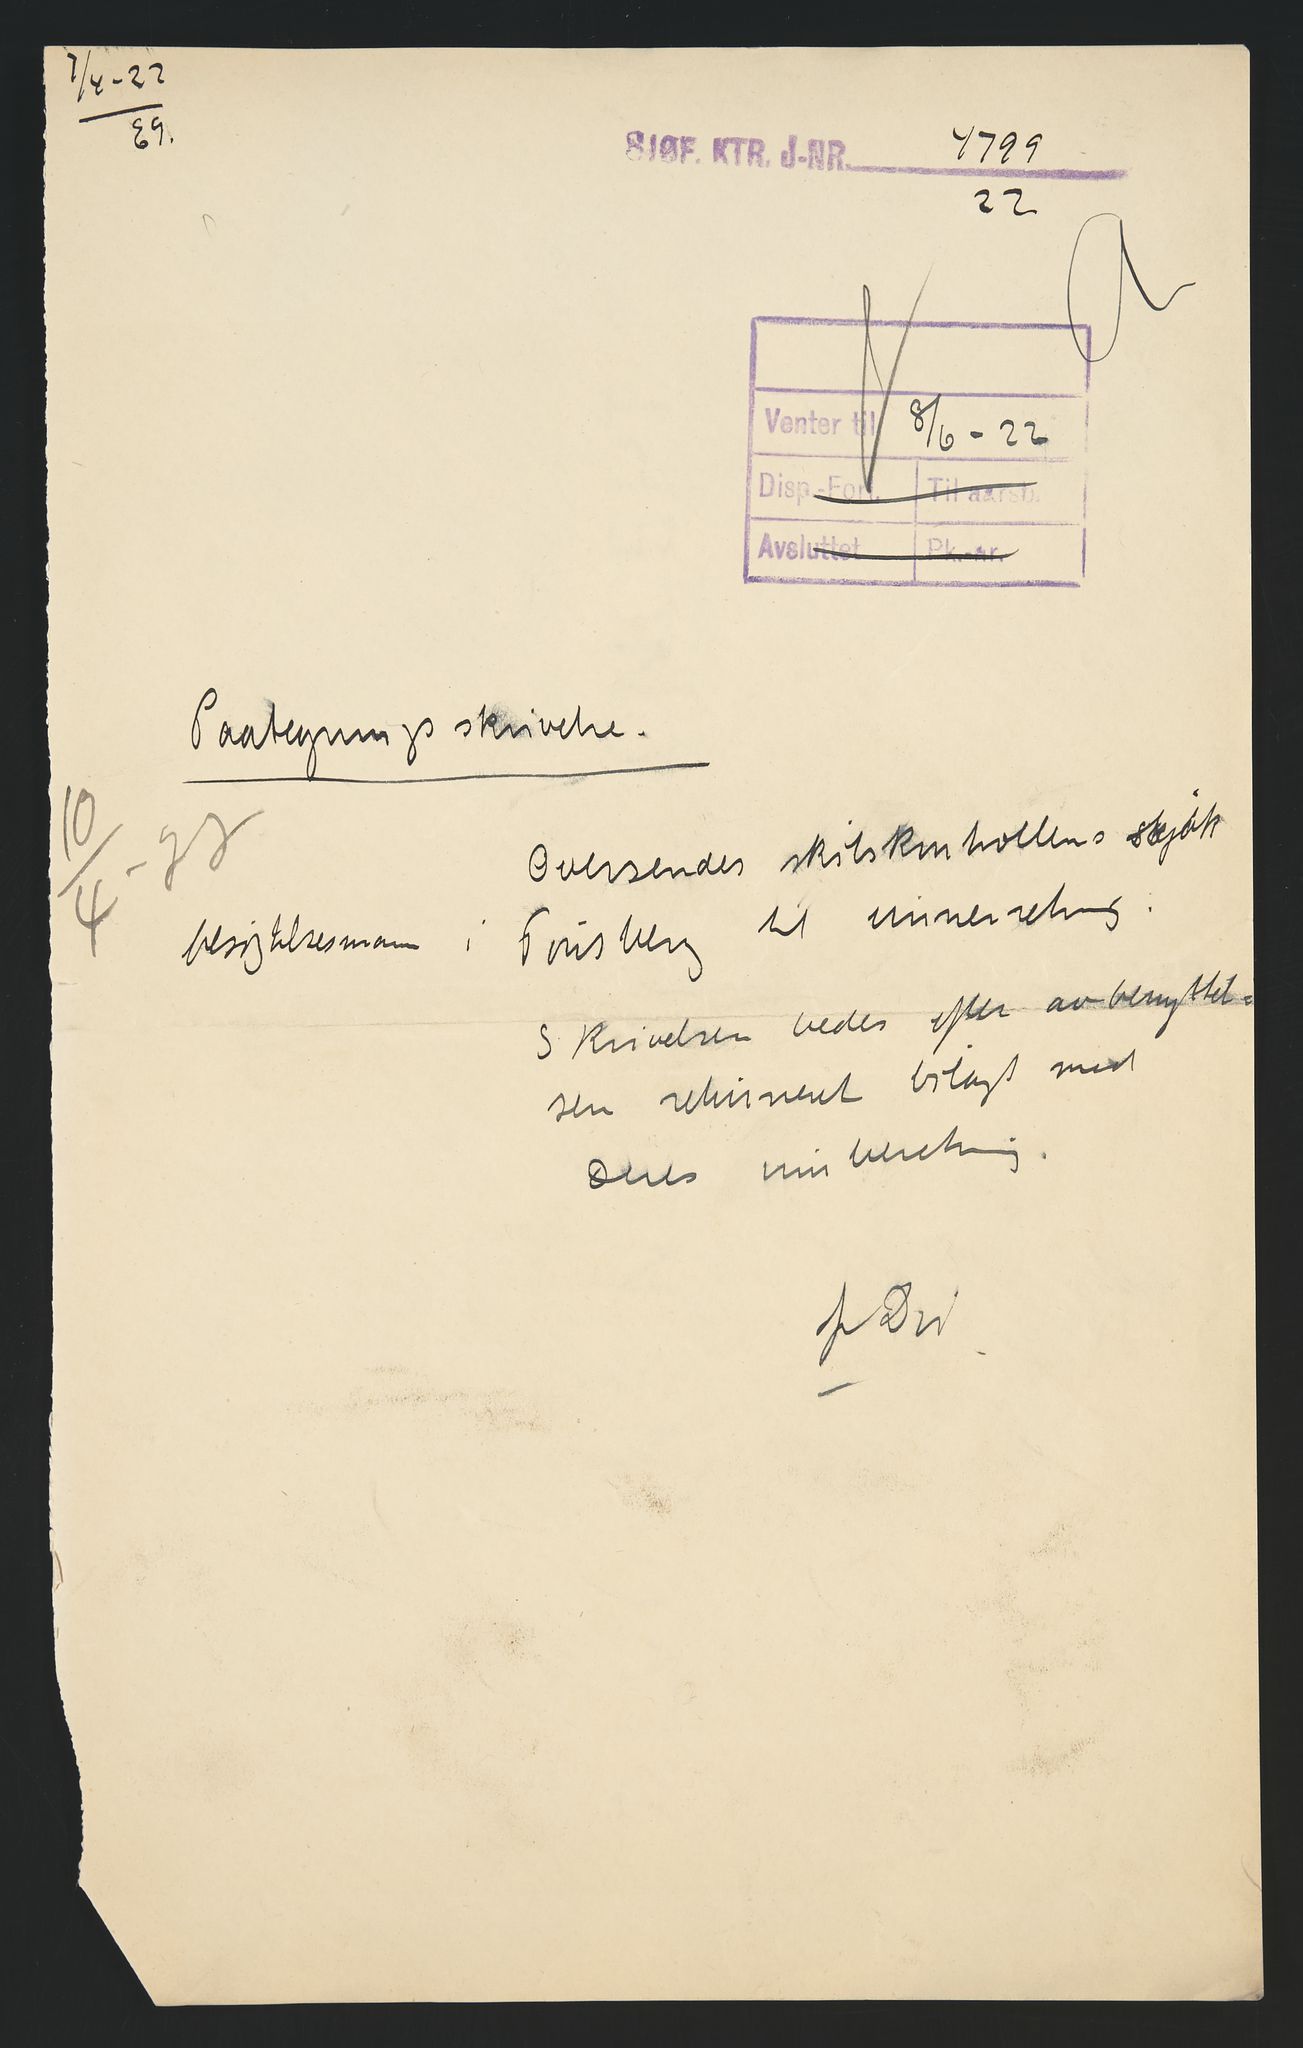 7/4-22
Eg.
SJØF. KTR. J-NR. 4799
22
Venter til 8/6-22
Disp.-Forf. Til aarsb.
Avsluttet Pk.-nr.
Paategningsskrivelse.
10/4-22
Oversendes skibskontrollens
besigtelsesmann i Tønsberg til
Skrivelsen bedes efter avbenyttel=
sen returneret bilagt med
Deres innberetning.